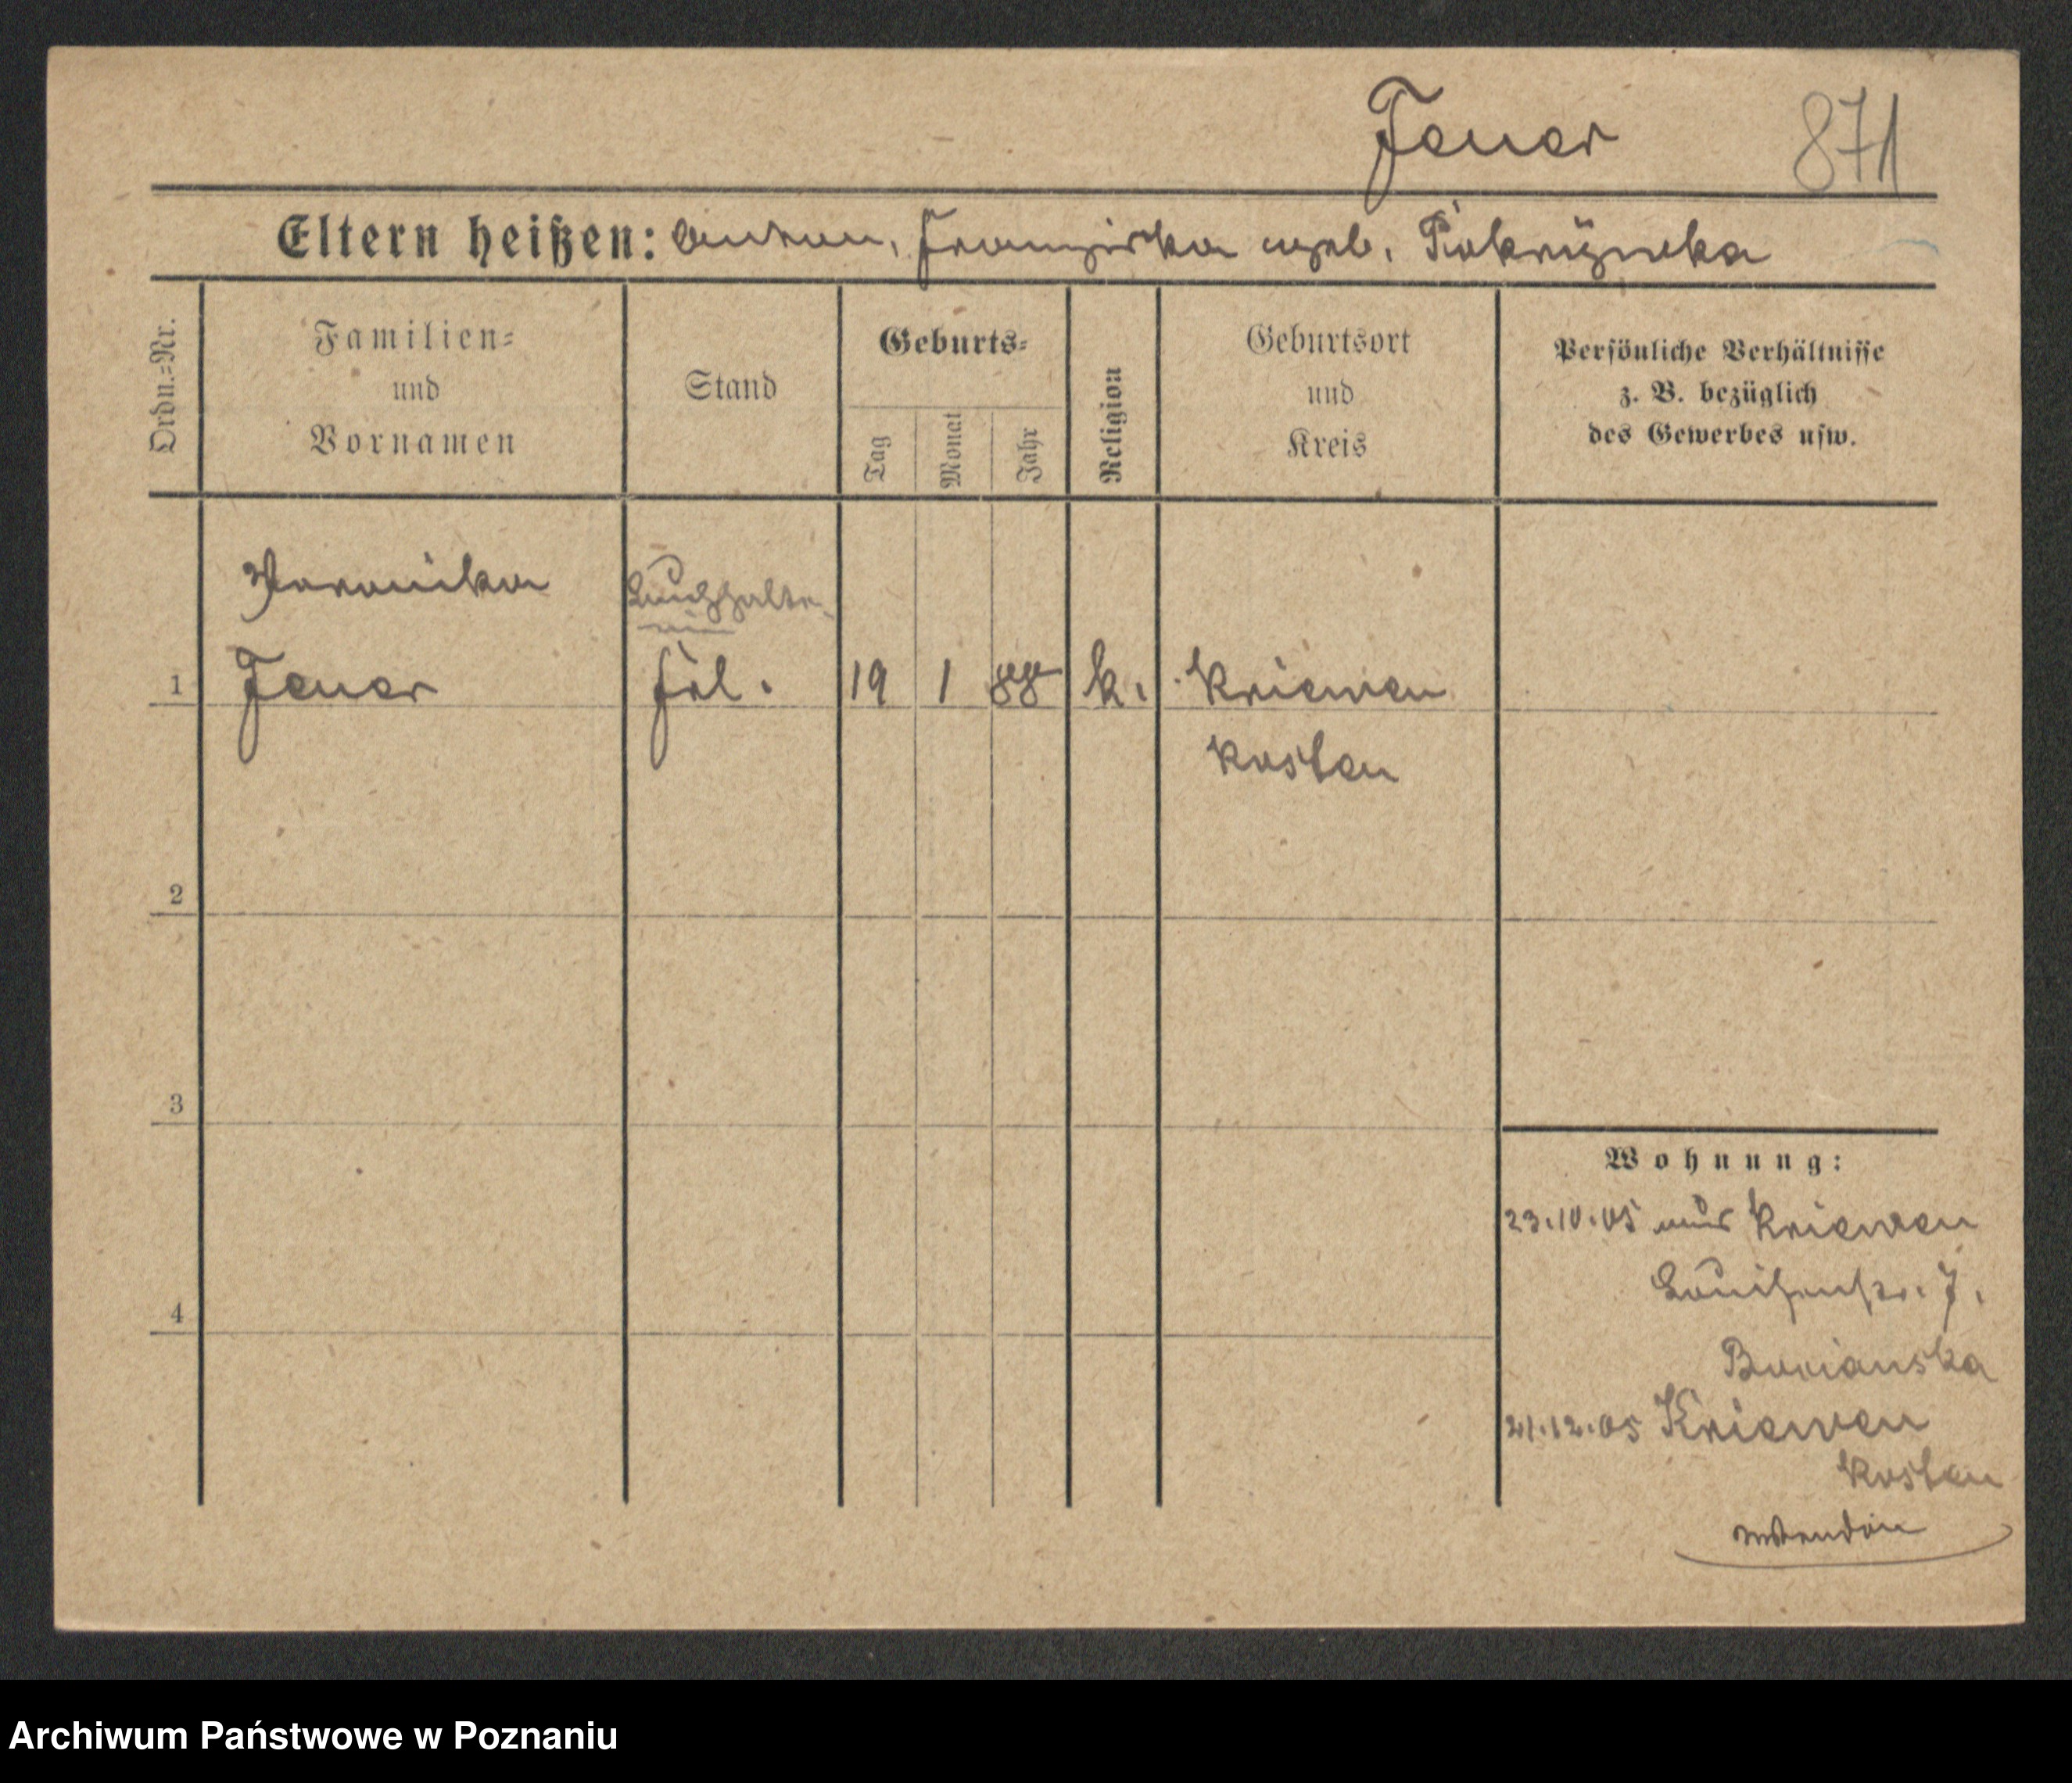 Fener 871
Eltern heißen: Anton, Franziska geb.
Ordn.-Nr.
Familien-
und
Vornamen
Stand
Geburts-
Tag
Monat
Jahr
Religion
Geburtsort
und
Kreis
Persönliche Verhältnisse
z. B. bezüglich
des Gewerbes usw.
Veronika
Buchhalte-
rin
1 Fener Frl. 19 1 88 k. Kriewen
Kosten
2
3
4
Wohnung:
23.10.05 aus Kriewen
Louisenstr. 7.
21.12.05 Kriewen
Kosten
Archiwum Państwowe w Poznaniu